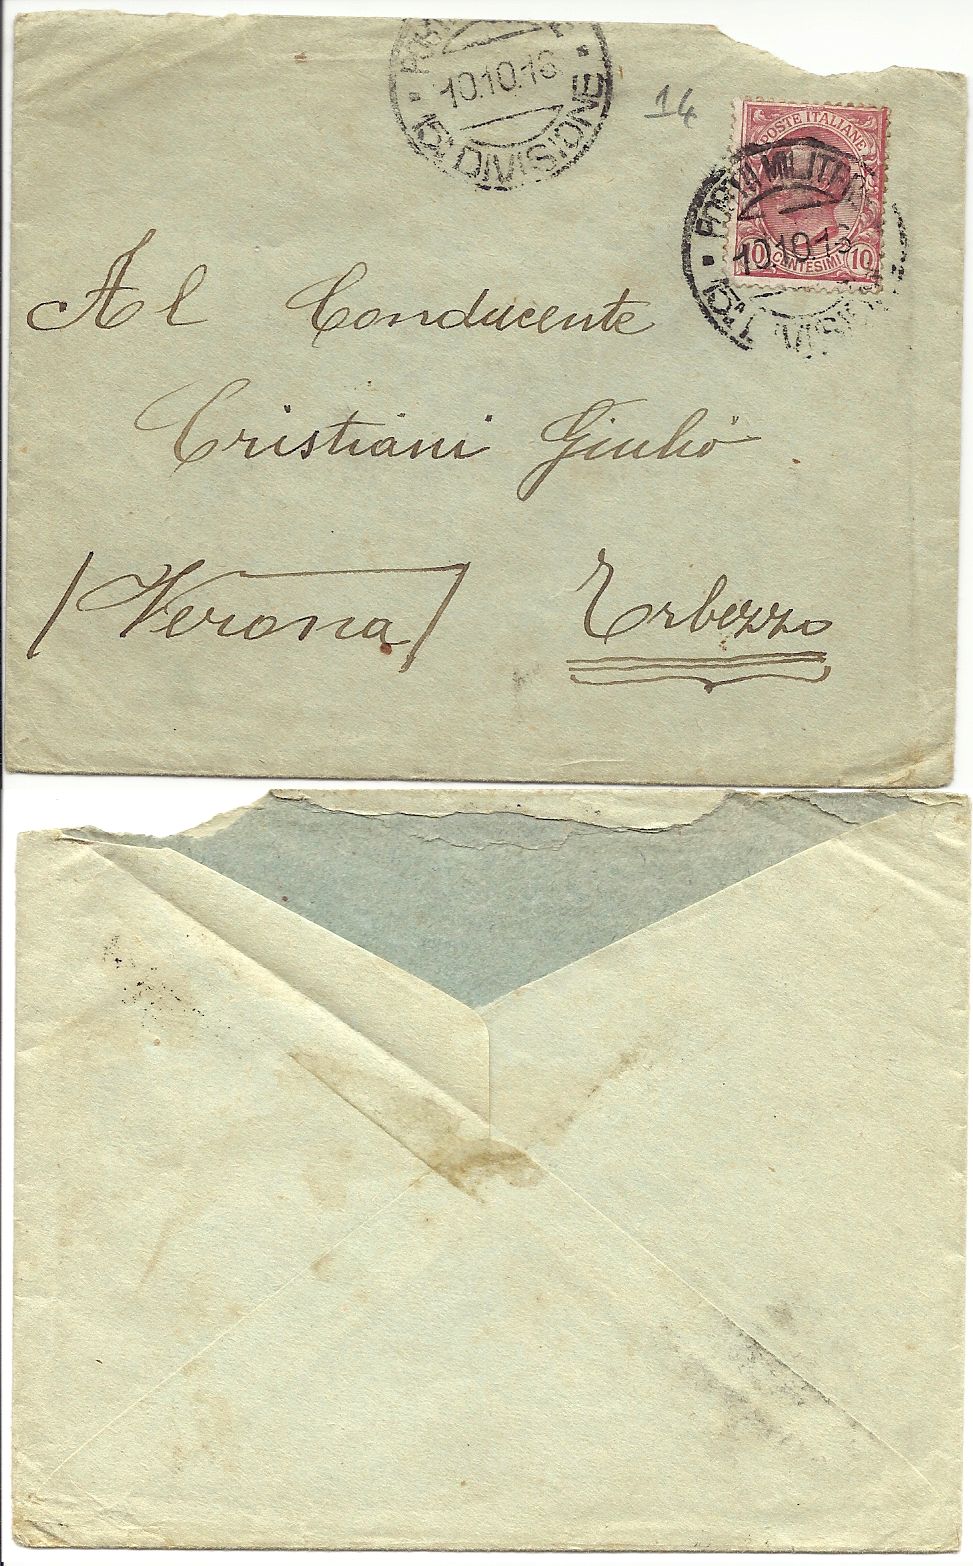 10.10.16
DIVISIONE
14
POSTE ITALIANE
POSTA MILITARE
10.10.16
10 CENTESIMI 10
Al Conducente
Cristiani Giulio
/Verona/ Erbezzo